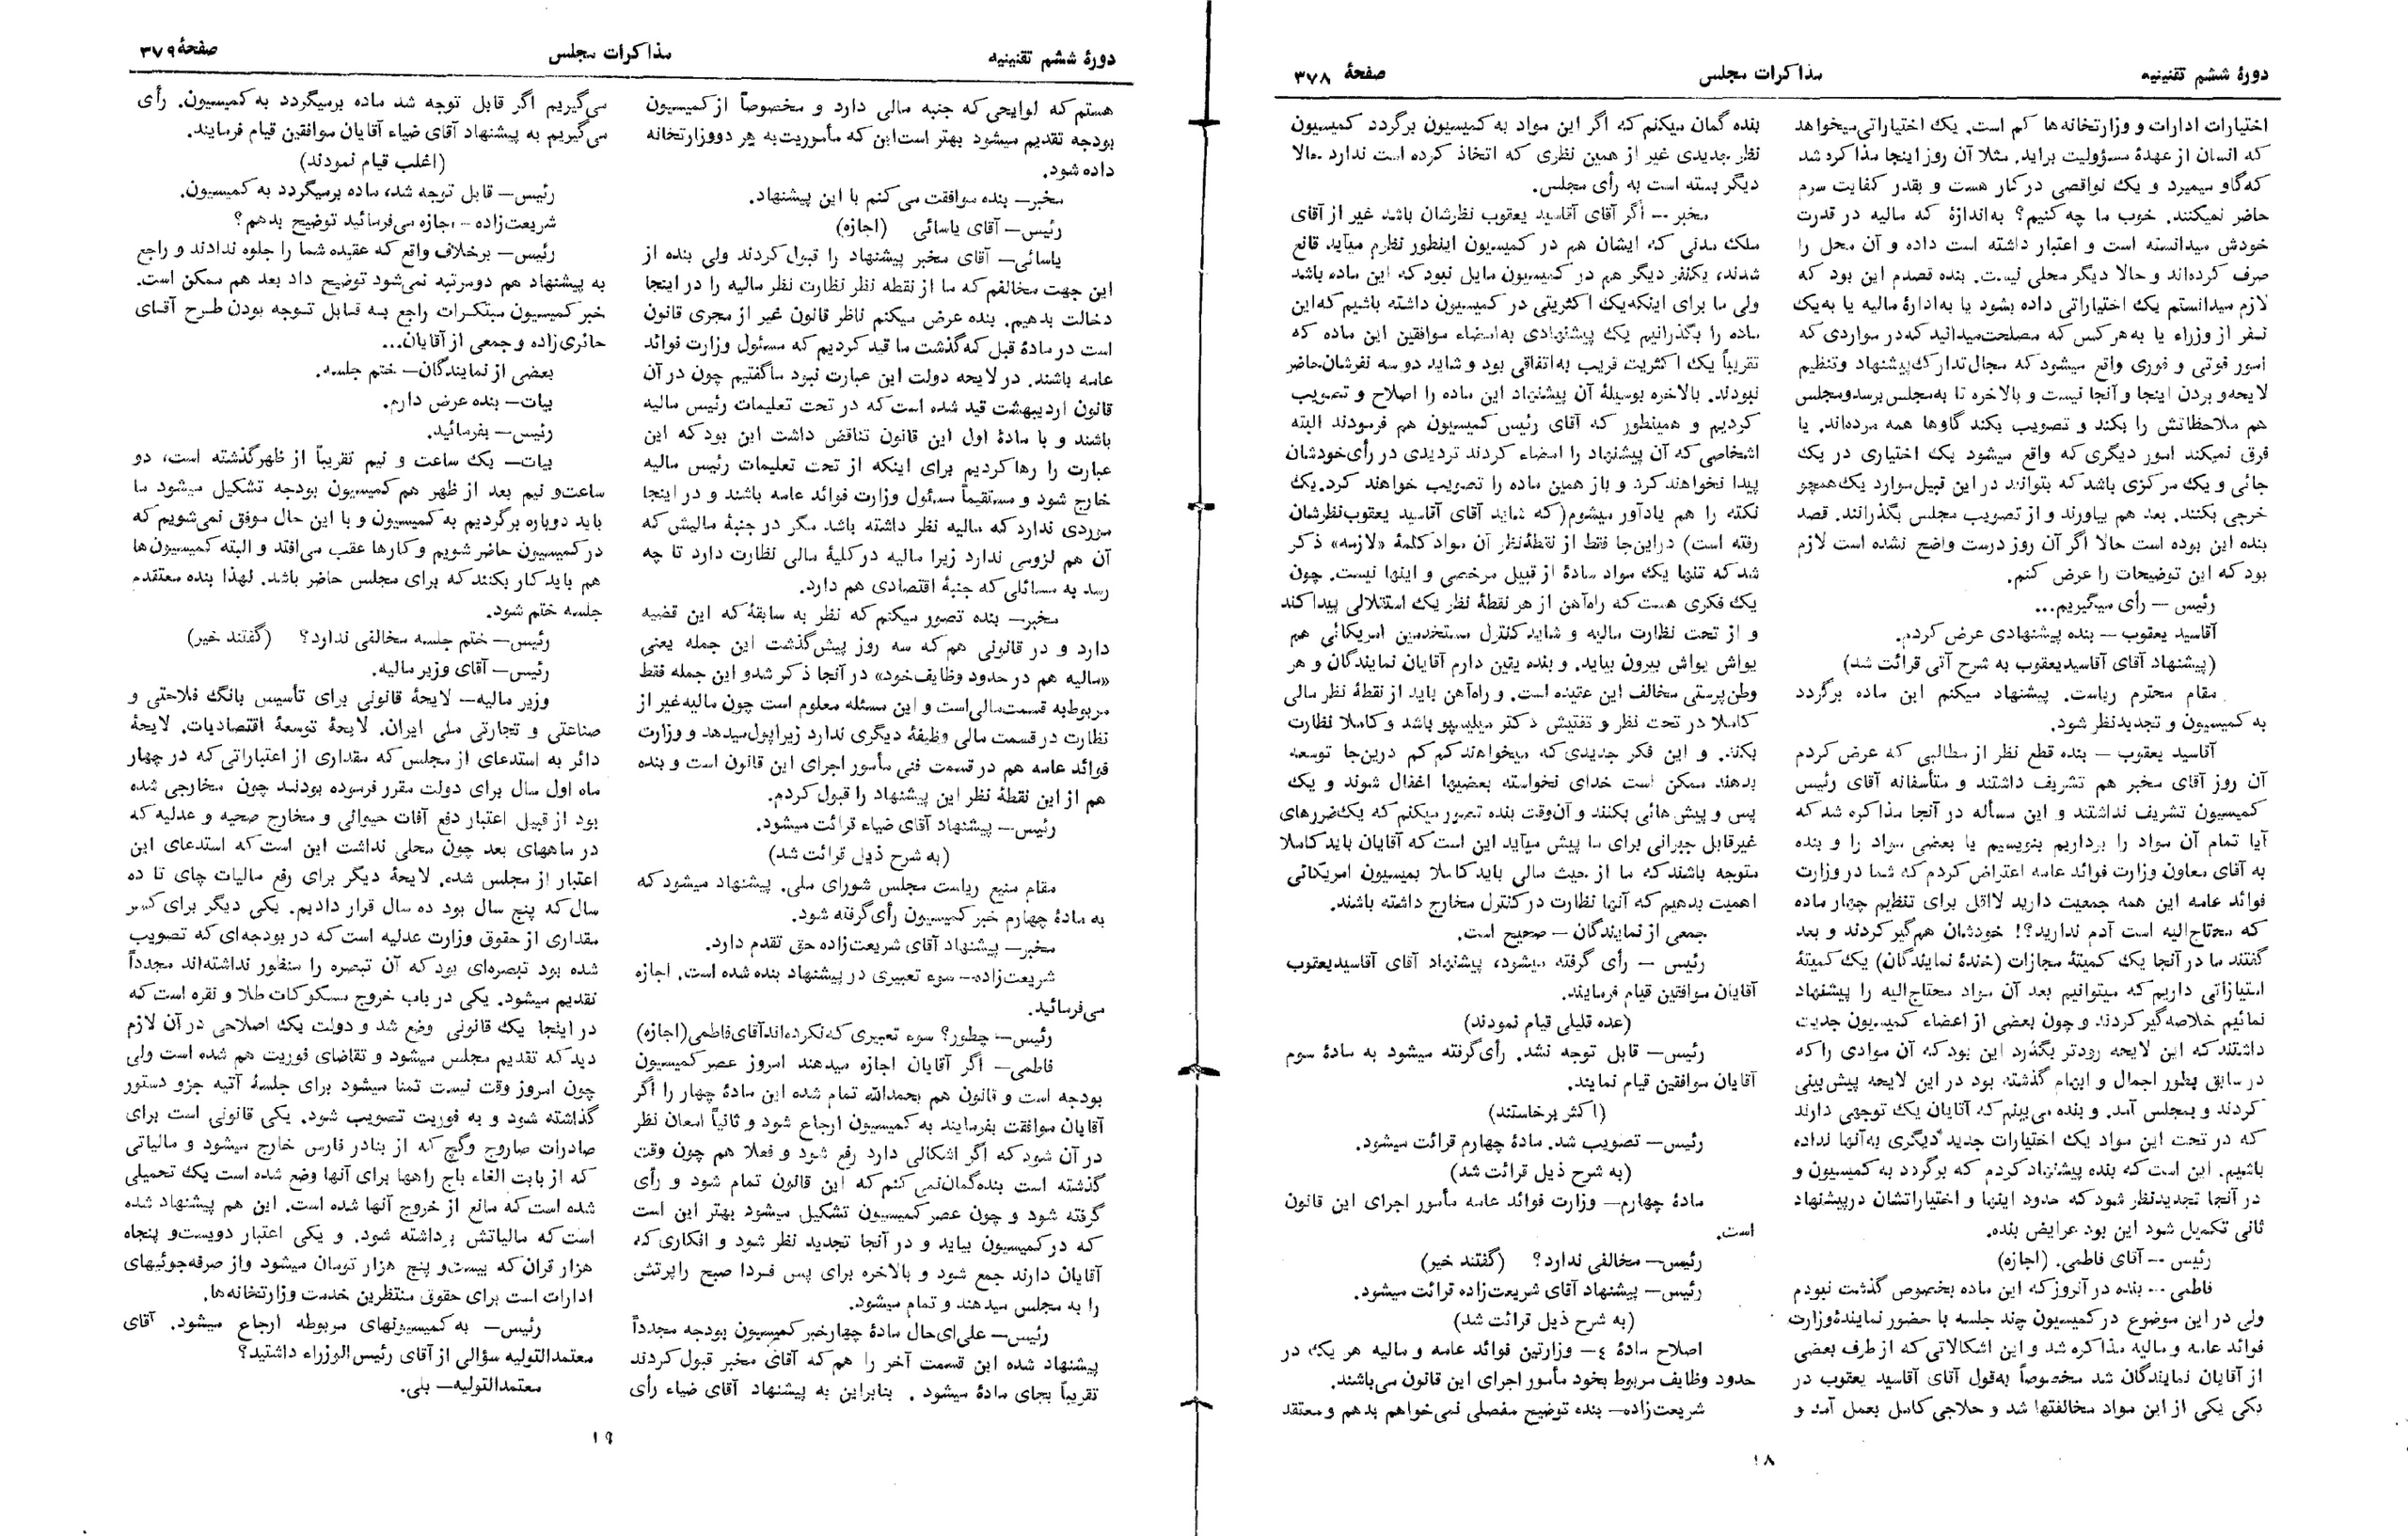 دورهٔ ششم تقنینیه
مذاکرات مجلس
صفحهٔ ۳۷۸
اختیارات ادارات و وزارتخانه‌ها کم است. یک اختیاراتی میخواهد
که انسان از عهدهٔ مسؤولیت براید. مثلا آن روز اینجا مذاکره شد
که گاو میمیرد و یک نواقصی در کار هست و بقدر کفایت سرم
حاضر نمیکنند. خوب ما چه کنیم؟ به‌اندازهٔ که مالیه در قدرت
خودش میدانسته است و اعتبار داشته است داده و آن محل را
صرف کرده‌اند و حالا دیگر محلی نیست. بنده قصدم این بود که
لازم میدانستم یک اختیاراتی داده بشود یا به‌ادارهٔ مالیه یا به‌یک
نفر از وزراء یا به هر کس که مصلحت میدانید که در مواردی که
امور فوتی و فوری واقع میشود که مجال تدارک پیشنهاد و تنظیم
لایحه و بردن اینجا و آنجا نیست و بالاخره تا به مجلس برسد و مجلس
هم ملاحظاتش را بکند و تصویب بکند گاوها همه مرده‌اند. یا
فرق نمیکند امور دیگری که واقع میشود یک اختیاری در یک
جائی و یک مرکزی باشد که بتوانند در این قبیل موارد یک همچو
خرجی بکنند. بعد هم بیاورند و از تصویب مجلس بگذرانند. قصد
بنده این بوده است حالا اگر آن روز درست واضح نشده است لازم
بود که این توضیحات را عرض کنم.
رئیس — رأی میگیریم...
آقاسید یعقوب — بنده پیشنهادی عرض کردم.
(پیشنهاد آقای آقاسیدیعقوب به شرح آتی قرائت شد)
مقام محترم ریاست. پیشنهاد میکنم این ماده برگردد
به کمیسیون و تجدیدنظر شود.
آقاسید یعقوب — بنده قطع نظر از مطالبی که عرض کردم
آن روز آقای مخبر هم تشریف داشتند و متأسفانه آقای رئیس
کمیسیون تشریف نداشتند و این مسأله در آنجا مذاکره شد که
آیا تمام آن مواد را برداریم بنویسیم یا بعضی مواد را و بنده
به آقای معاون وزارت فوائد عامه اعتراض کردم که شما در وزارت
فوائد عامه این همه جمعیت دارید لااقل برای تنظیم چهار ماده
که محتاج‌الیه است آدم ندارید؟! خودشان هم گیر کردند و بعد
گفتند ما در آنجا یک کمیتهٔ مجازات (خندهٔ نمایندگان) یک کمیتهٔ
امتیازاتی داریم که میتوانیم بعد آن مواد محتاج‌الیه را پیشنهاد
نمائیم خلاصه گیر کردند و چون بعضی از اعضاء کمیسیون جدیت
داشتند که این لایحه زودتر بگذرد این بود که آن موادی را که
در سابق بطور اجمال و ابهام گذشته بود در این لایحه پیش‌بینی
کردند و بمجلس آمد. و بنده می‌بینم که آقایان یک توجهی دارند
که در تحت این مواد یک اختیارات جدید دیگری به آنها نداده
باشیم. این است که بنده پیشنهاد کردم که برگردد به کمیسیون و
در آنجا تجدیدنظر شود که حدود اینها و اختیاراتشان در پیشنهاد
ثانی تکمیل شود این بود عرایض بنده.
رئیس — آقای فاطمی. (اجازه)
فاطمی — بنده در آنروز که این ماده بخصوص گذشت نبودم
ولی در این موضوع در کمیسیون چند جلسه با حضور نمایندهٔ وزارت
فوائد عامه و مالیه مذاکره شد و این اشکالاتی که از طرف بعضی
از آقایان نمایندگان شد مخصوصاً به‌قول آقای آقاسید یعقوب در
یکی یکی از این مواد مخالفتها شد و حلاجی کامل بعمل آمد و
بنده گمان میکنم که اگر این مواد به کمیسیون برگردد کمیسیون
نظر جدیدی غیر از همین نظری که اتخاذ کرده است ندارد حالا
دیگر بسته است به رأی مجلس.
مخبر — اگر آقای آقاسید یعقوب نظرشان باشد غیر از آقای
ملک مدنی که ایشان هم در کمیسیون اینطور نظرم میآید قانع
شدند، یکنفر دیگر هم در کمیسیون مایل نبود که این ماده باشد
ولی ما برای اینکه یک اکثریتی در کمیسیون داشته باشیم که این
ماده را بگذرانیم یک پیشنهادی به‌امضاء موافقین این ماده که
تقریباً یک اکثریت قریب به‌اتفاقی بود و شاید دو سه نفرشان حاضر
نبودند. بالاخره بوسیلهٔ آن پیشنهاد این ماده را اصلاح و تصویب
کردیم و همینطور که آقای رئیس کمیسیون هم فرمودند البته
اشخاصی که آن پیشنهاد را امضاء کردند تردیدی در رأی خودشان
پیدا نخواهند کرد و باز همین ماده را تصویب خواهند کرد. یک
نکته را هم یادآور میشوم (که شاید آقای آقاسید یعقوب نظرشان
رفته است) در این‌جا فقط از نقطه‌نظر آن مواد کلمهٔ «لازمه» ذکر
شد که تنها یک مواد سادهٔ از قبیل مرخصی و اینها نیست. چون
یک فکری هست که راه‌آهن از هر نقطهٔ نظر یک استقلالی پیدا کند
و از تحت نظارت مالیه و شاید کنترل مستخدمین امریکائی هم
یواش یواش بیرون بیاید. و بنده یقین دارم آقایان نمایندگان و هر
وطن‌پرستی مخالف این عقیده است. و راه‌آهن باید از نقطهٔ نظر مالی
کاملا در تحت نظر و تفتیش دکتر میلیسپو باشد و کاملا نظارت
بکند. و این فکر جدیدی که میخواهند کم کم درین‌جا توسعه
بدهند ممکن است خدای نخواسته بعضیها اغفال شوند و یک
پس و پیش هائی بکنند و آن‌وقت بنده تصور میکنم که یک ضررهای
غیرقابل جبرانی برای ما پیش میآید این است که آقایان باید کاملا
متوجه باشند که ما از حیث مالی باید کاملا بمیسیون امریکائی
اهمیت بدهیم که آنها نظارت در کنترل مخارج داشته باشند.
جمعی از نمایندگان — صحیح است.
رئیس — رأی گرفته میشود، پیشنهاد آقای آقاسیدیعقوب
آقایان موافقین قیام فرمایند.
(عده قلیلی قیام نمودند)
رئیس— قابل توجه نشد. رأی گرفته میشود به مادهٔ سوم
آقایان موافقین قیام نمایند.
(اکثر برخاستند)
رئیس— تصویب شد. مادهٔ چهارم قرائت میشود.
(به شرح ذیل قرائت شد)
مادهٔ چهارم— وزارت فوائد عامه مأمور اجرای این قانون
است.
رئیس— مخالفی ندارد؟ (گفتند خیر)
رئیس— پیشنهاد آقای شریعت‌زاده قرائت میشود.
(به شرح ذیل قرائت شد)
اصلاح مادهٔ ٤— وزارتین فوائد عامه و مالیه هر یک در
حدود وظایف مربوط بخود مأمور اجرای این قانون می‌باشند.
شریعت‌زاده— بنده توضیح مفصلی نمی‌خواهم بدهم و معتقد
۱۸
دورهٔ ششم تقنینیه
مذاکرات مجلس
صفحهٔ ۳۷۹
هستم که لوایحی که جنبه مالی دارد و مخصوصاً از کمیسیون
بودجه تقدیم میشود بهتر است این که مأموریت به هر دو وزارتخانه
داده شود.
مخبر— بنده موافقت می کنم با این پیشنهاد.
رئیس— آقای یاسائی (اجازه)
یاسائی— آقای مخبر پیشنهاد را قبول کردند ولی بنده از
این جهت مخالفم که ما از نقطه نظر نظارت نظر مالیه را در اینجا
دخالت بدهیم. بنده عرض میکنم ناظر قانون غیر از مجری قانون
است در مادهٔ قبل که گذشت ما قید کردیم که مسئول وزارت فوائد
عامه باشند. در لایحه دولت این عبارت نبود ما گفتیم چون در آن
قانون اردیبهشت قید شده است که در تحت تعلیمات رئیس مالیه
باشند و با مادهٔ اول این قانون تناقض داشت این بود که این
عبارت را رها کردیم برای اینکه از تحت تعلیمات رئیس مالیه
خارج شود و مستقیماً مسئول وزارت فوائد عامه باشند و در اینجا
موردی ندارد که مالیه نظر داشته باشد مگر در جنبهٔ مالیش که
آن هم لزومی ندارد زیرا مالیه در کلیهٔ مالی نظارت دارد تا چه
رسد به مسائلی که جنبهٔ اقتصادی هم دارد.
مخبر— بنده تصور میکنم که نظر به سابقهٔ که این قضیه
دارد و در قانونی هم که سه روز پیش گذشت این جمله یعنی
«مالیه هم در حدود وظایف خود» در آنجا ذکر شد و این جمله فقط
مربوط به قسمت مالی است و این مسئله معلوم است چون مالیه غیر از
نظارت در قسمت مالی وظیفهٔ دیگری ندارد زیرا پول میدهد و وزارت
فوائد عامه هم در قسمت فنی مأمور اجرای این قانون است و بنده
هم از این نقطهٔ نظر این پیشنهاد را قبول کردم.
رئیس— پیشنهاد آقای ضیاء قرائت میشود.
(به شرح ذیل قرائت شد)
مقام منیع ریاست مجلس شورای ملی. پیشنهاد میشود که
به مادهٔ چهارم خبر کمیسیون رأی گرفته شود.
مخبر— پیشنهاد آقای شریعت‌زاده حق تقدم دارد.
شریعت‌زاده— سوء تعبیری در پیشنهاد بنده شده است. اجازه
می‌فرمائید.
رئیس— چطور؟ سوء تعبیری که نکرده‌اند آقای فاطمی (اجازه)
فاطمی— اگر آقایان اجازه میدهند امروز عصر کمیسیون
بودجه است و قانون هم بحمدالله تمام شده این مادهٔ چهار را اگر
آقایان موافقت بفرمایند به کمیسیون ارجاع شود و ثانیاً امعان نظر
در آن شود که اگر اشکالی دارد رفع شود و فعلا هم چون وقت
گذشته است بنده گمان نمی کنم که این قانون تمام شود و رأی
گرفته شود و چون عصر کمیسیون تشکیل میشود بهتر این است
که در کمیسیون بیاید و در آنجا تجدید نظر شود و افکاری که
آقایان دارند جمع شود و بالاخره برای پس فردا صبح راپرتش
را به مجلس میدهند و تمام میشود.
رئیس— علی‌ای‌حال مادهٔ چهار خبر کمیسیون بودجه مجدداً
پیشنهاد شده این قسمت آخر را هم که آقای مخبر قبول کردند
تقریباً بجای مادهٔ میشود. بنابراین به پیشنهاد آقای ضیاء رأی
می‌گیریم اگر قابل توجه شد ماده برمیگردد به کمیسیون. رأی
می‌گیریم به پیشنهاد آقای ضیاء آقایان موافقین قیام فرمایند.
(اغلب قیام نمودند)
رئیس— قابل توجه شد، ماده برمیگردد به کمیسیون.
شریعت‌زاده — اجازه می‌فرمائید توضیح بدهم؟
رئیس— برخلاف واقع که عقیده شما را جلوه ندادند و راجع
به پیشنهاد هم دو مرتبه نمی‌شود توضیح داد بعد هم ممکن است.
خبر کمیسیون مبتکرات راجع به قابل توجه بودن طرح آقای
حائری‌زاده و جمعی از آقایان...
بعضی از نمایندگان— ختم جلسه.
بیات— بنده عرض دارم.
رئیس— بفرمائید.
بیات— یک ساعت و نیم تقریباً از ظهر گذشته است، دو
ساعت و نیم بعد از ظهر هم کمیسیون بودجه تشکیل میشود ما
باید دوباره برگردیم به کمیسیون و با این حال موفق نمی‌شویم که
در کمیسیون حاضر شویم و کارها عقب می‌افتد و البته کمیسیون‌ها
هم باید کار بکنند که برای مجلس حاضر باشد. لهذا بنده معتقدم
جلسه ختم شود.
رئیس— ختم جلسه مخالفی ندارد؟ (گفتند خیر)
رئیس— آقای وزیر مالیه.
وزیر مالیه— لایحهٔ قانونی برای تأسیس بانک فلاحتی و
صناعتی و تجارتی ملی ایران. لایحهٔ توسعهٔ اقتصادیات. لایحهٔ
دائر به استدعای از مجلس که مقداری از اعتباراتی که در چهار
ماه اول سال برای دولت مقرر فرموده بودند چون مخارجی شده
بود از قبیل اعتبار دفع آفات حیوانی و مخارج صحیه و عدلیه که
در ماههای بعد چون محلی نداشت این است که استدعای این
اعتبار از مجلس شده. لایحهٔ دیگر برای رفع مالیات چای تا ده
سال که پنج سال بود ده سال قرار دادیم. یکی دیگر برای کسر
مقداری از حقوق وزارت عدلیه است که در بودجه‌ای که تصویب
شده بود تبصره‌ای بود که آن تبصره را منظور نداشته‌اند مجدداً
تقدیم میشود. یکی در باب خروج مسکوکات طلا و نقره است که
در اینجا یک قانونی وضع شد و دولت یک اصلاحی در آن لازم
دید که تقدیم مجلس میشود و تقاضای فوریت هم شده است ولی
چون امروز وقت نیست تمنا میشود برای جلسهٔ آتیه جزو دستور
گذاشته شود و به فوریت تصویب شود. یکی قانونی است برای
صادرات صاروج و گچ که از بنادر فارس خارج میشود و مالیاتی
که از بابت الغاء باج راهها برای آنها وضع شده است یک تحمیلی
شده است که مانع از خروج آنها شده است. این هم پیشنهاد شده
است که مالیاتش برداشته شود. و یکی اعتبار دویست و پنجاه
هزار قران که بیست و پنج هزار تومان میشود و از صرفه‌جوئیهای
ادارات است برای حقوق منتظرین خدمت وزارتخانه‌ها.
رئیس— به کمیسیونهای مربوطه ارجاع میشود. آقای
معتمدالتولیه سؤالی از آقای رئیس‌الوزراء داشتید؟
معتمدالتولیه— بلی.
۱۹